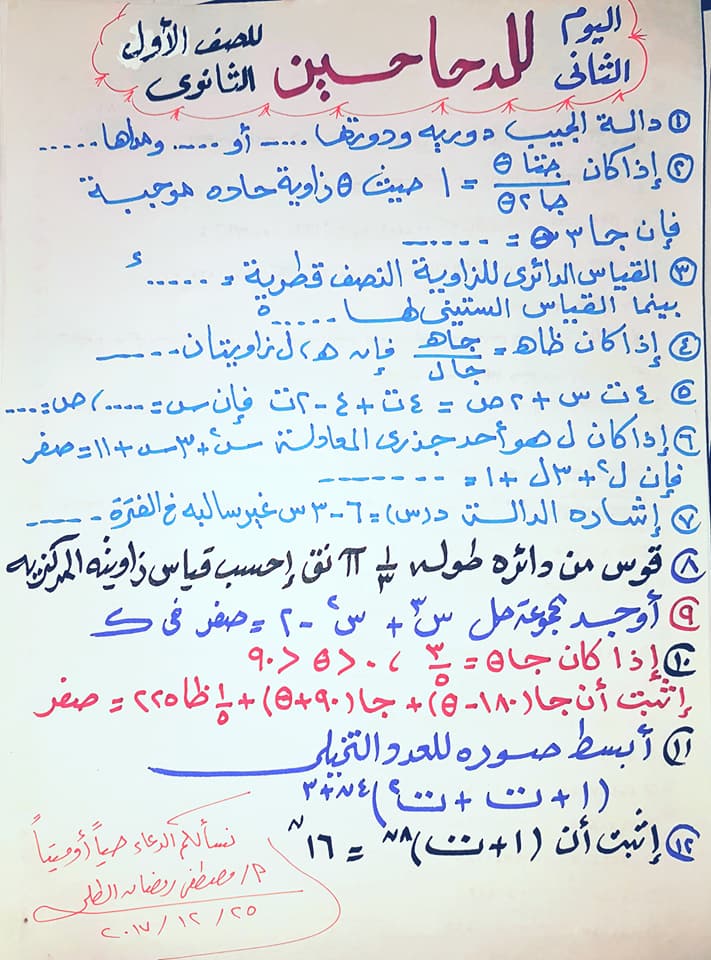 اليوم الثانى
للدحاحين
للصف الأول الثانوى
① دالة الجيب دورية ودورتها ..... أو ..... ومداها .....
② إذا كان جتا θ / جا ٢θ = ١ حيث θ زاوية حاده موجبة
فإن جا ٣θ = ......
③ القياس الدائرى للزاوية النصف قطرية = ..... ء
بينما القياس الستينى لها ..... °
④ إذا كان ظا هـ = جا هـ / جا ل فإنه هـ ، ل زاويتان .....
⑤ ٤ت س + ٢ص = ٤ت + ٤ - ٢ت فإن س = .... ، ص = ....
⑥ إذا كان ل هو أحد جذرى المعادلة س٢ + ٣س + ١١ = صفر
فإن ل٢ + ٣ل + ١ = .......
⑦ إشاره الدالة د(س) = ٦ - ٣س غير سالبه فى الفترة .....
⑧ قوس من دائره طوله ١/٣ π نق إحسب قياس زاويته المركزيه
⑨ أوجد مجموعة حل س٣ + س٢ - ٢ = صفر فى ك
⑩ إذا كان جا θ = ٣/٥ ، ٠ < θ < ٩٠
إثبت أن جا (١٨٠ - θ) + جا (٩٠ + θ) + ١/٥ ظا ٢٢٥ = صفر
⑪ أبسط صوره للعدد التخيلى
(١ + ت + ت٢)٤ن+٣
⑫ إثبت أن (١ + ت)٨ن = ١٦ن
نسألكم الدعاء حياً أو ميتاً
م/ مصطفى رمضان
٢٥ / ١٢ / ٢٠١٧